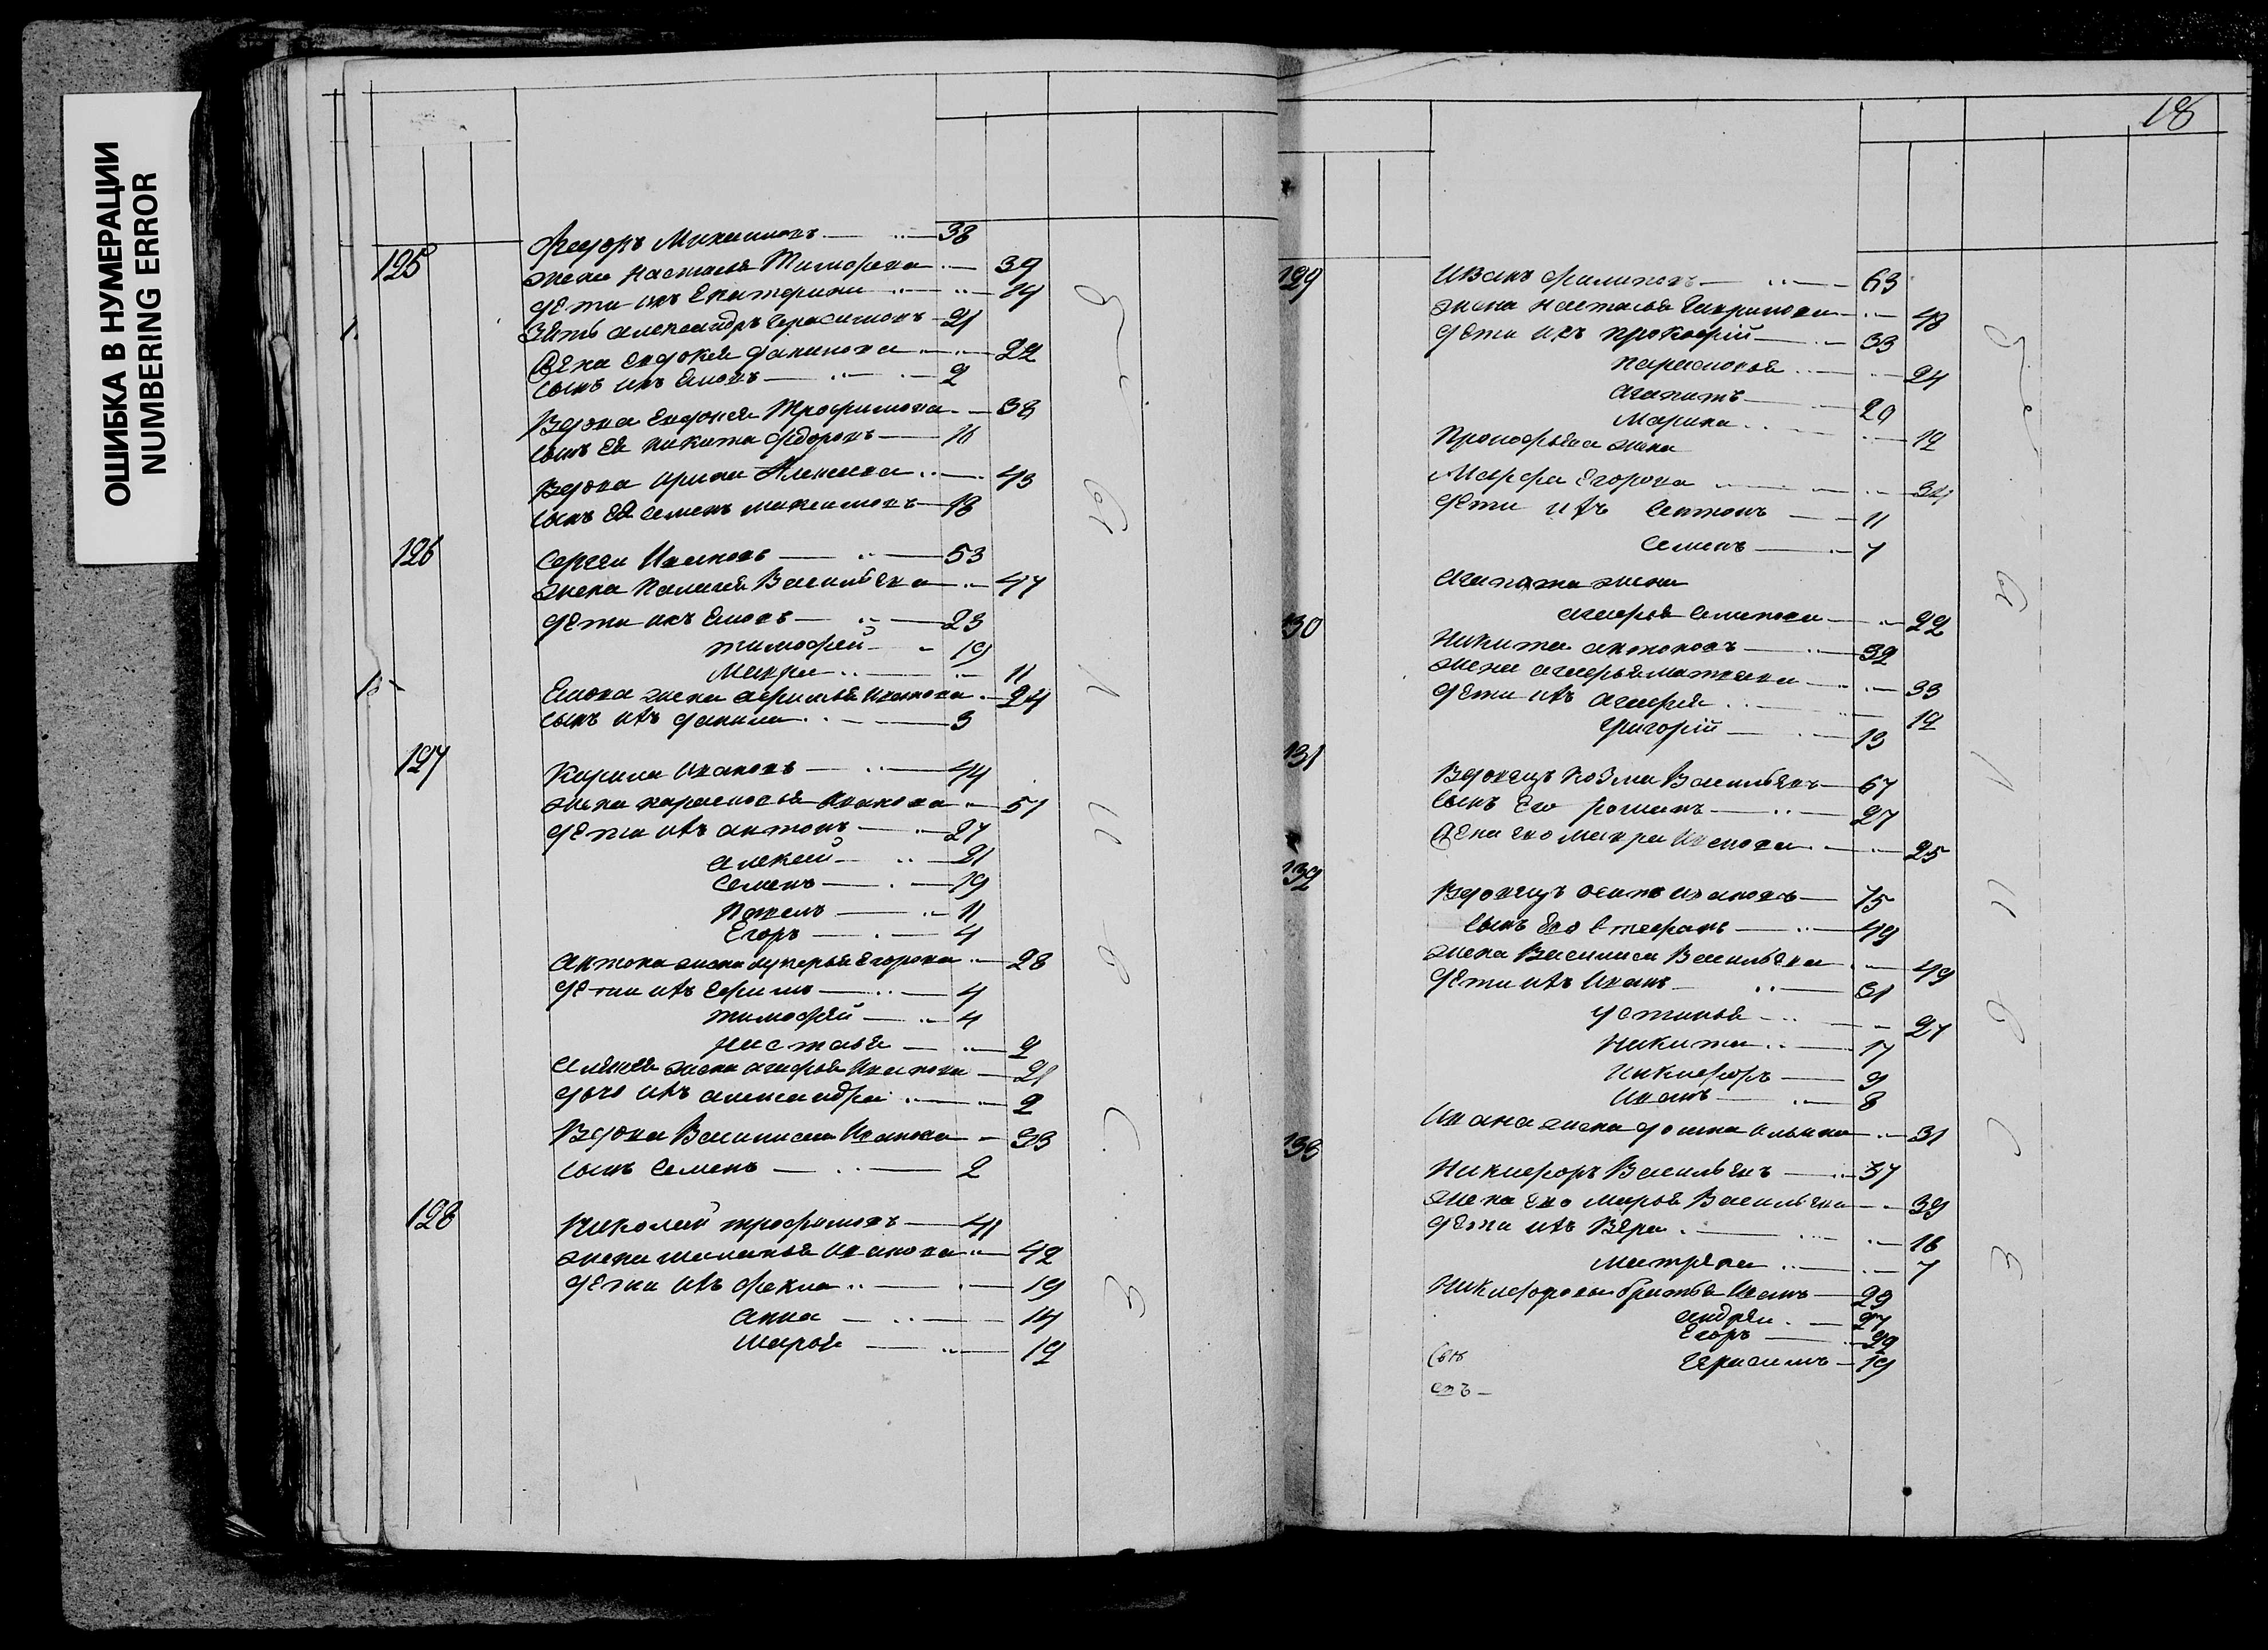 ОШИБКА В НУМЕРАЦИИ
NUMBERING ERROR
Федоръ Михаиловъ 38
125 жена Настасья Тимофеева 39
дети ихъ Екатерина 14
Зять александръ Герасимовъ 21
Жена евдокея данилова 22
сынъ ихъ 2
Вдова Евдокея Трофимова 38
сынъ ея никита федоровъ 11
Вдова ирина 43
сынъ ея семенъ максимовъ 18
126 Сергеи Ивановъ 53
жена Палагея Васильева 47
дети ихъ 23
тимофей 19
Мавра 11
жена Ивановна 24
сынъ ихъ данила 3
127 Кирила Ивановъ 44
жена парасковья Иванова 51
дети ихъ антонъ 27
алексей 21
Семенъ 19
Павелъ 11
Егоръ 4
антона жена лукерья Егорова 28
дети ихъ Ефимъ 4
тимофей 4
настасья 2
алексея жена агафья Иванова 21
дочь ихъ александра 2
Вдова Василиса Иванова 33
сынъ Семенъ 2
128 Николай трофимовъ 41
жена маланья Иванова 42
дети ихъ фекла 19
анна 14
марья 12
18
129 Иванъ филиповъ 63
жена настасья Гаврилова 48
дети ихъ прокофiй 33
парасковья 24
агапитъ 20
Марина 12
Прокофья жена
Марфа Егорова 34
дети ихъ 11
Семенъ 7
агапита жена
агафья Семенова 22
130 Никита антоновъ 32
жена агафья матвеева 33
дети ихъ агафья 12
григорiй 13
131 Вдовецъ козма Васильевъ 67
сынъ Его романъ 27
Жена его мавра Иванова 25
132 Вдовецъ осипъ ивановъ 75
сынъ Его стефанъ 49
жена Василиса Васильева 49
дети ихъ Иванъ 31
устинья 21
Никита 17
Никифоръ 9
Иванъ 8
Ивана жена домна ильина 31
133 Никифоръ Васильевъ 37
жена его марья Васильева 39
дети ихъ Вера 16
матрена 7
Никифоровы братья Иванъ 29
андреи 27
Егоръ 22
Герасимъ 19